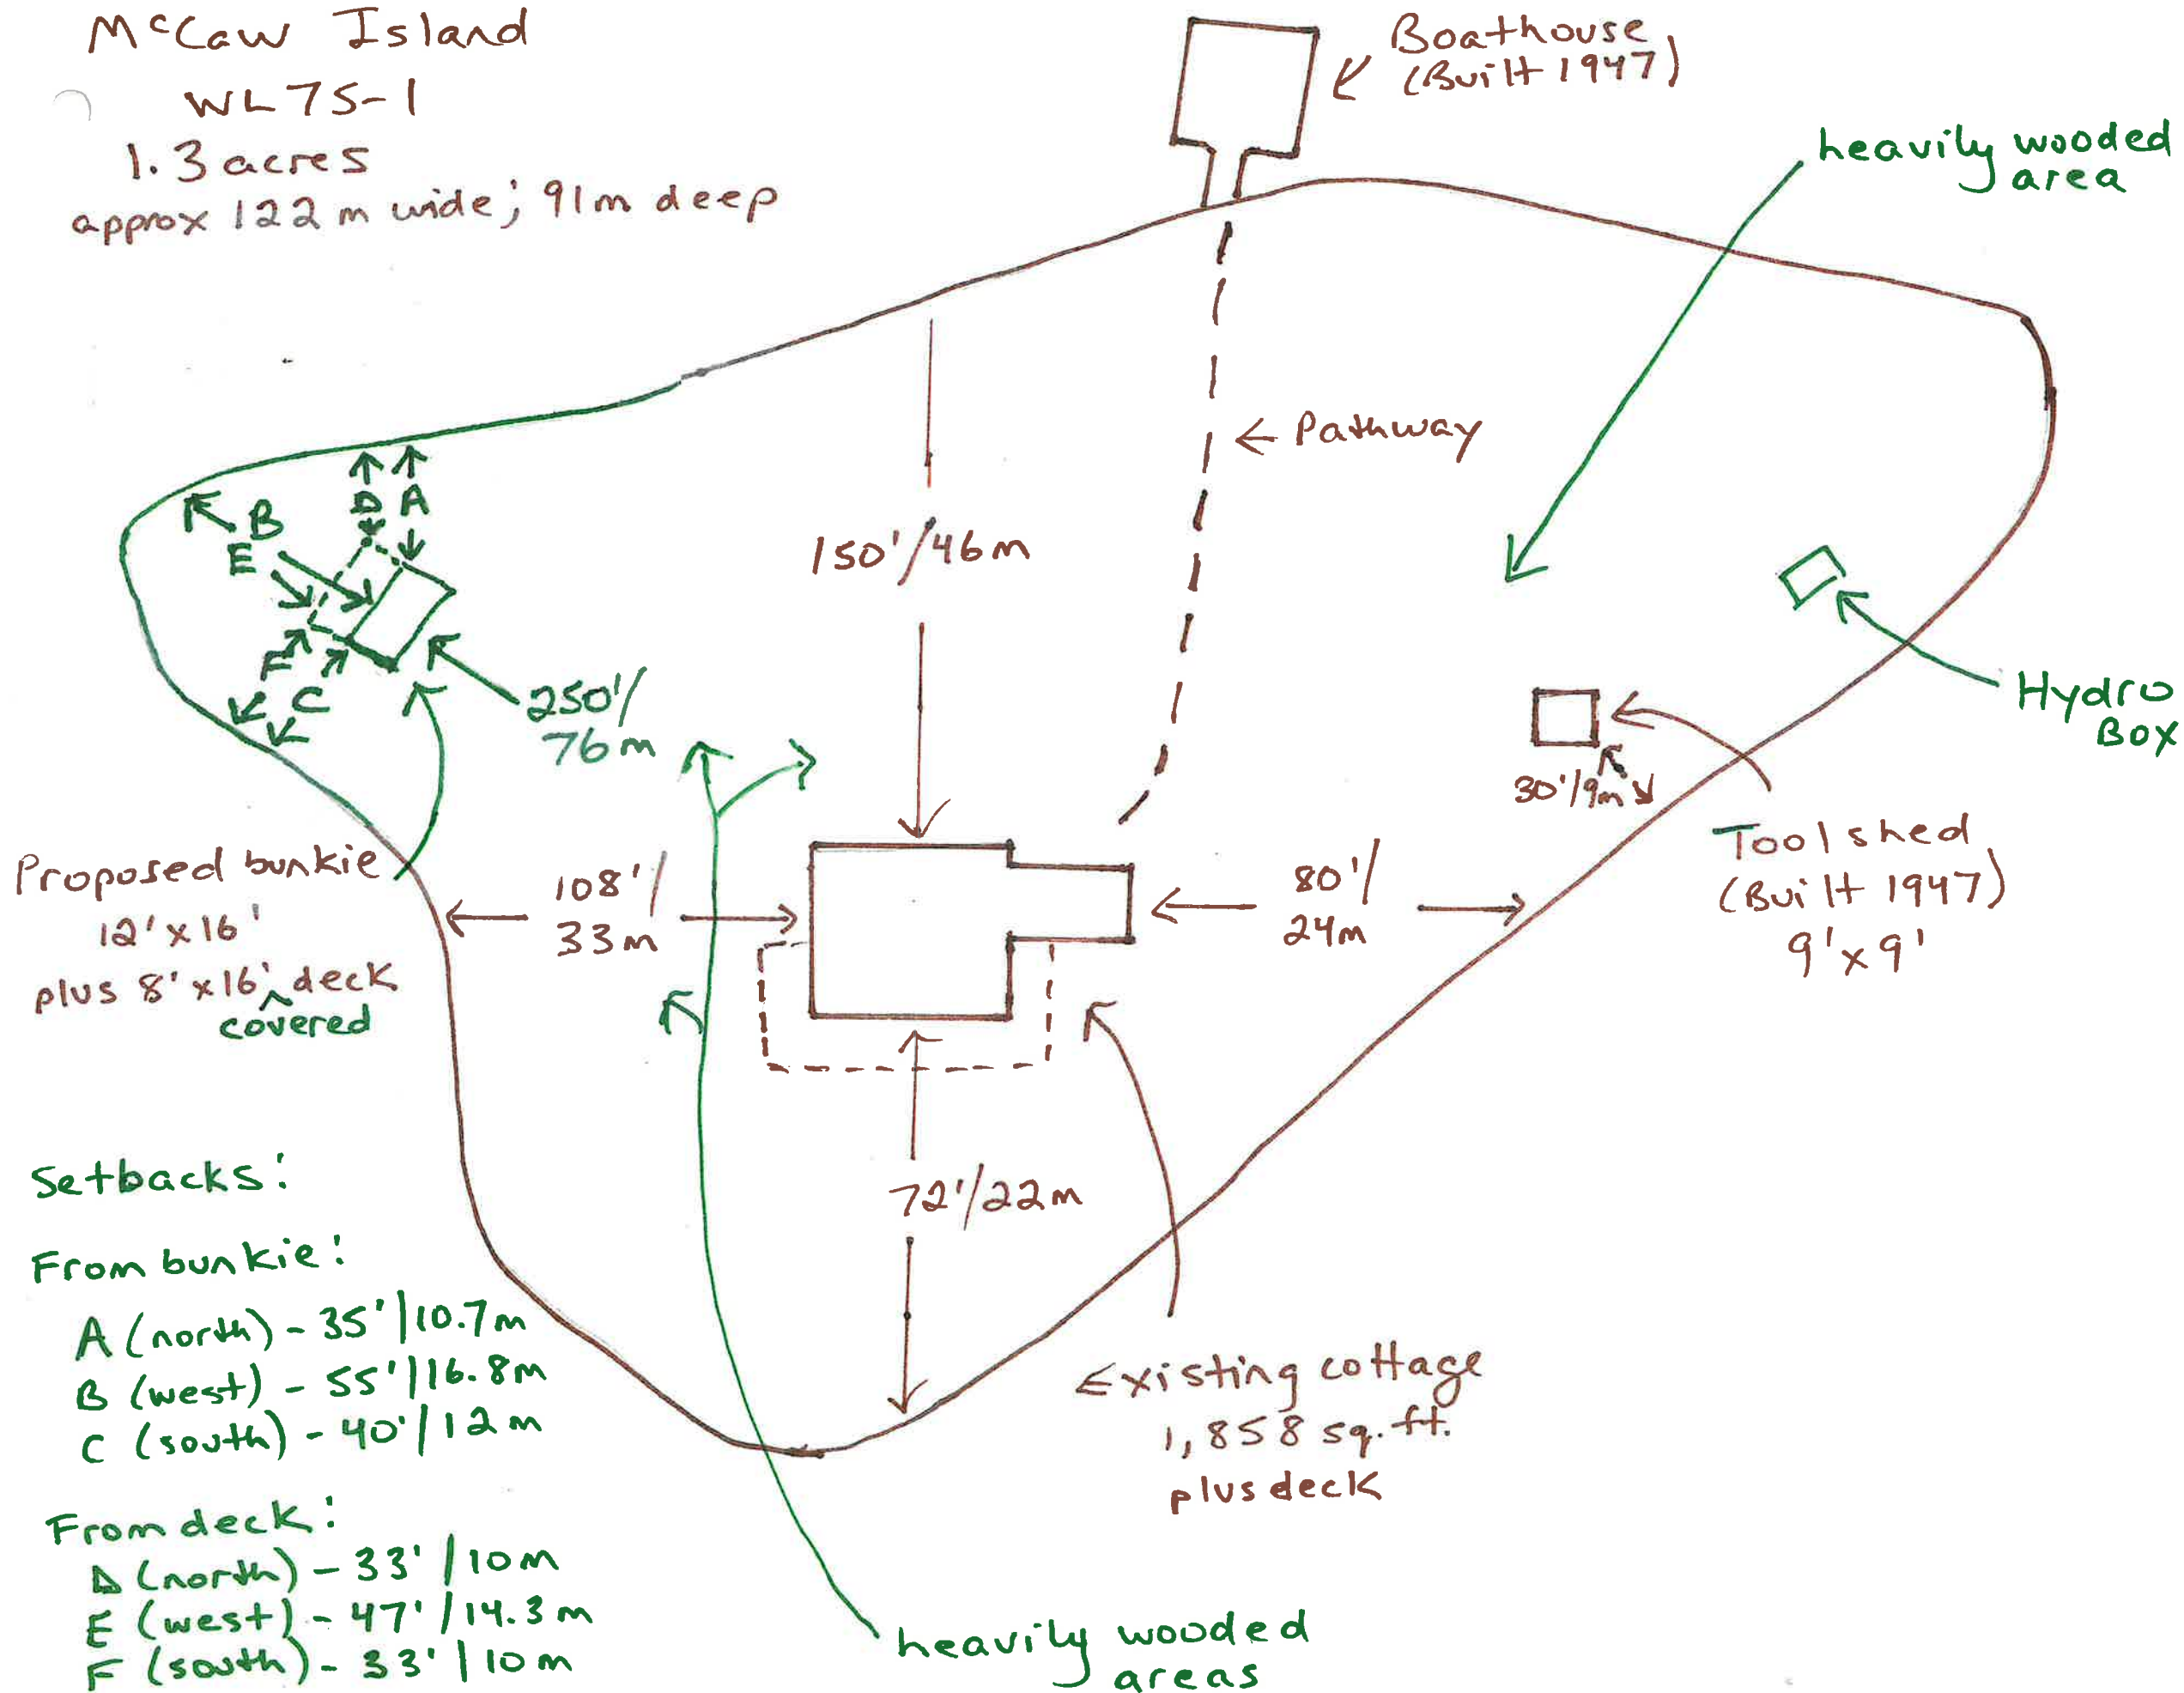 McCaw Island
WL75-1
1.3 acres
approx 122m wide; 91m deep
Boathouse
(Built 1947)
heavily wooded
area
Pathway
D A
B
E
F
C
150'/46m
250'/
76m
Hydro
Box
30'/9m
Tool shed
(Built 1947)
9'x9'
Proposed bunkie
12'x16'
plus 8'x16' ^ deck
covered
108'/
33m
80'/
24m
72'/22m
Existing cottage
1,858 sq. ft.
plus deck
Setbacks:
From bunkie:
A (north) - 35'/10.7m
B (west) - 55'/16.8m
C (south) - 40'/12m
From deck:
D (north) - 33'/10m
E (west) - 47'/14.3m
F (south) - 33'/10m
heavily wooded
areas